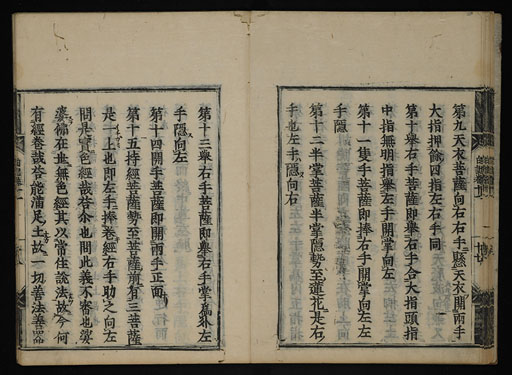 第九天衣菩薩向右右手懸天衣開兩手
大指押餘四指左右手同
第十舉右手菩薩即舉右手合大指頭指
中指無明指舉左手開掌向左
第十一隻手菩薩即捧右手開掌向左左
手隱
第十二半掌菩薩半掌隱勢至蓮花是右
手也左手隱向右
第十三舉右手菩薩即舉右手掌爲外左
手隱向左
第十四開手菩薩即開兩手正面
第十五持經菩薩勢至菩薩前有三菩薩
是一上也即左手捧卷經右手助之向左
問是寶色經哉答介也問此義不審也婆
婆佛在世無色經其以常住說法故今何
有經卷哉答能滿足土故一切善法善